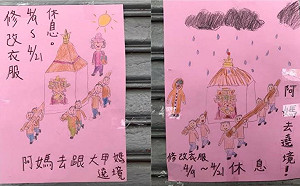 修改衣服
4/9~4/21
休息。
阿媽去跟大甲媽
遶境
阿媽去遶境!
修改衣服
4/9~4/21休息